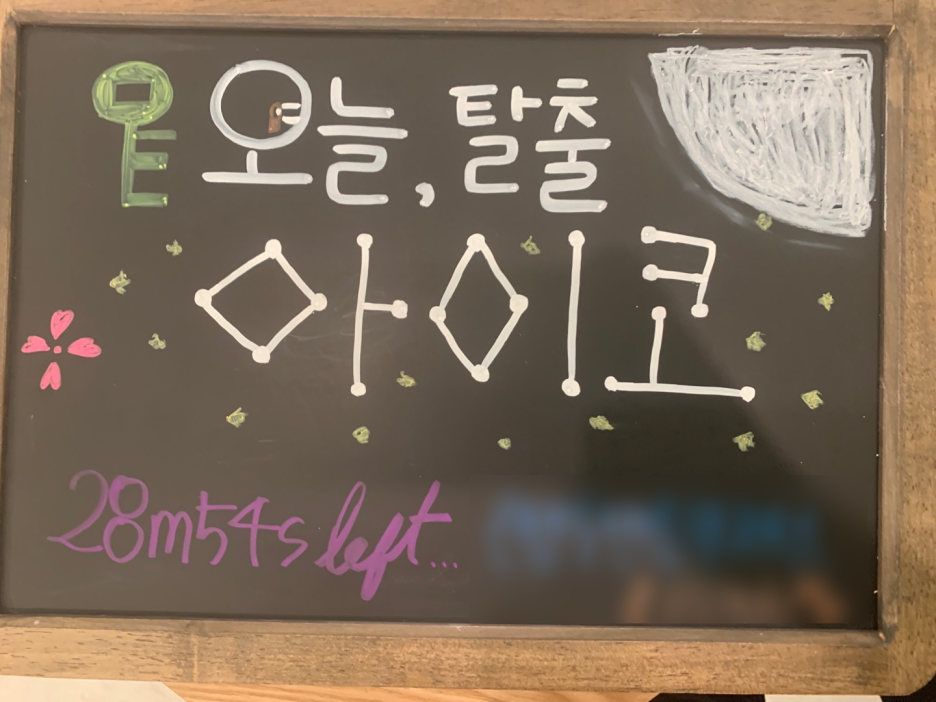 오늘, 탈출
아이코
28m54s left...